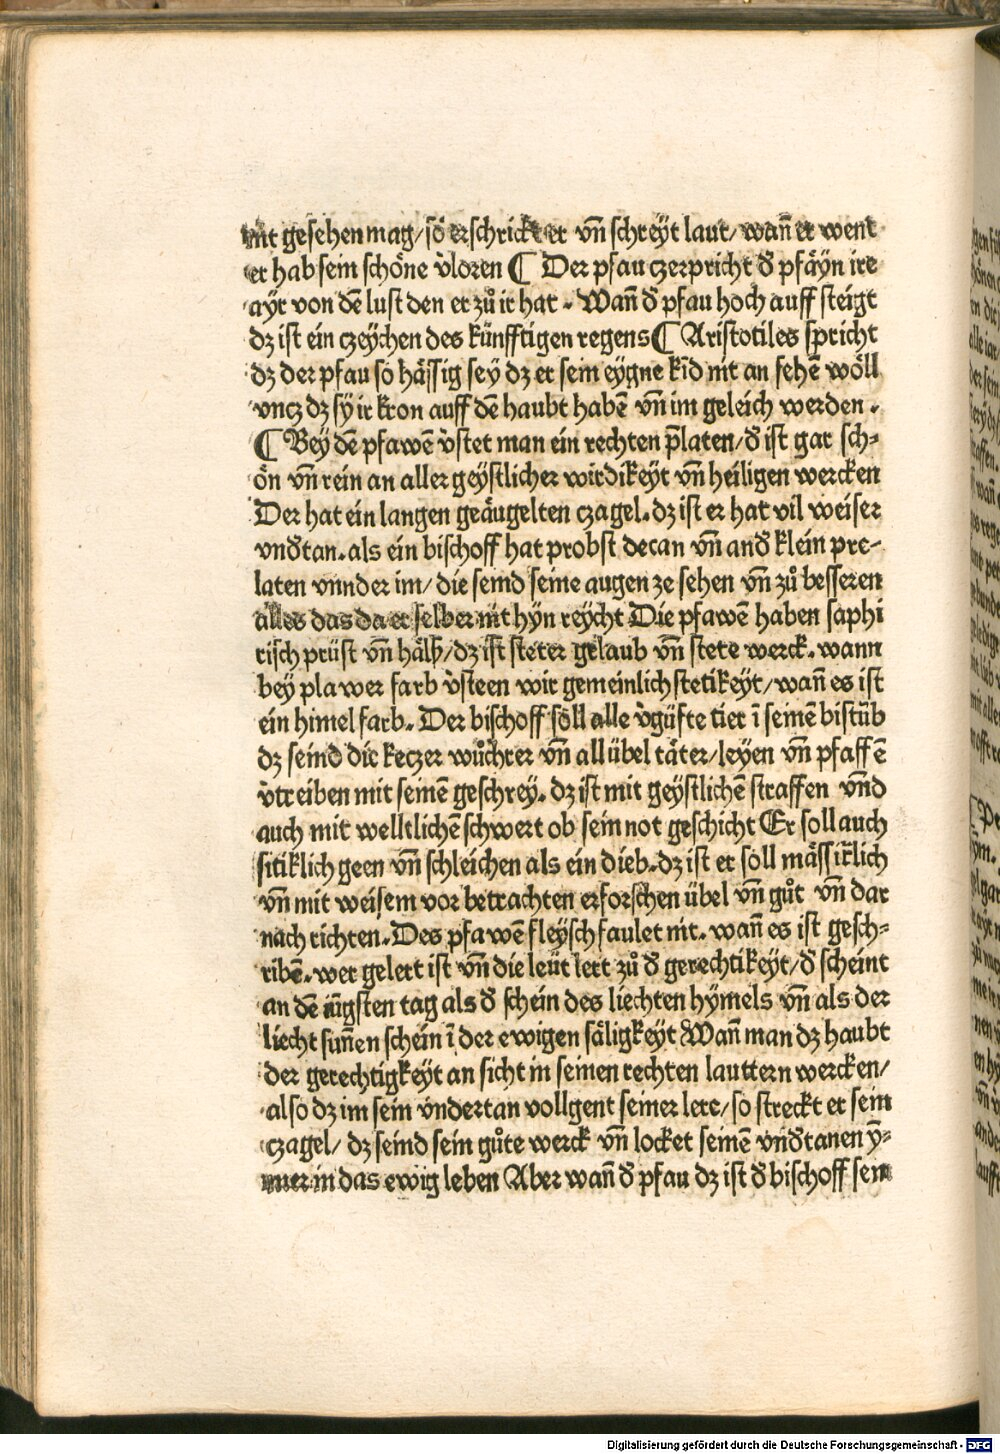 nit gesehen mag/ so erschrickt er vñ schreyt laut/ wañ er went
er hab sein schöne v̓loren ¶ Der pfau czerpricht d̓ pfäyn ire
ayr von dē lust den er zů ir hat. Wañ d̓ pfau hoch auff steigt
dz ist ein czeychen des künfftigen regens ¶ Aristotiles spricht
dz der pfau so hässig sey dz er sein eygne kīd nit an sehē wöll
vncz dz sy ir kron auff dē haubt habē vñ im geleich werden.
¶ Bey dē pfawē v̓stet man ein rechten p̄laten/ d̓ ist gar sch⸗
ön vñ rein an aller geystlicher wirdikeyt vñ heiligen wercken
Der hat ein langen geäugelten czagel. dz ist er hat vil weiser
vnd̓tan. als ein bischoff hat probst decan vñ and̓ klein pre⸗
laten vnnder im/ die seind seine augen ze sehen vñ zů besseren
alles das da er selber nit hyn reycht Die pfawē haben saphi
risch prüst vñ hälß/ dz ist steter gelaub vñ stete werck. wann
bey plawer farb v̓steen wir gemeinlich stetikeyt/ wañ es ist
ein himel farb. Der bischoff söll alle v̓güfte tier ī seinē bistūb
dz seind die keczer wůchrer vñ all übel täter/ leyen vñ pfaffē
v̓treiben mit seinē geschrey. dz ist mit geystlichē straffen vn̄d
auch mit welltlichē schwert ob sein not geschicht Er soll auch
sitiklich geen vñ schleichen als ein dieb. dz ist er söll mässiklich
vñ mit weisem vor betrachten erforschen übel vñ gůt vñ dar
nach richten. Des pfawē fleysch faulet nit. wañ es ist gesch⸗
ribē. wer gelert ist vñ die leüt lert zů d̓ gerechtikeyt/ d̓ scheint
an dē iūgsten tag als d̓ schein des liechten hymels vñ als der
liecht sunnen schein ī der ewigen säligkeyt Wañ man dz haubt
der gerechtigkeyt an sicht in seinen rechten lauttern wercken/
also dz im sein vndertan vollgent seiner lere/ so streckt er sein
czagel/ dz seind sein gůte werck vñ locket seinē vnd̓tanen ȳ⸗
mer in das ewig leben Aber wañ d̓ pfau dz ist d̓ bischoff sein
Digitalisierung gefördert durch die Deutsche Forschungsgemeinschaft - DFG